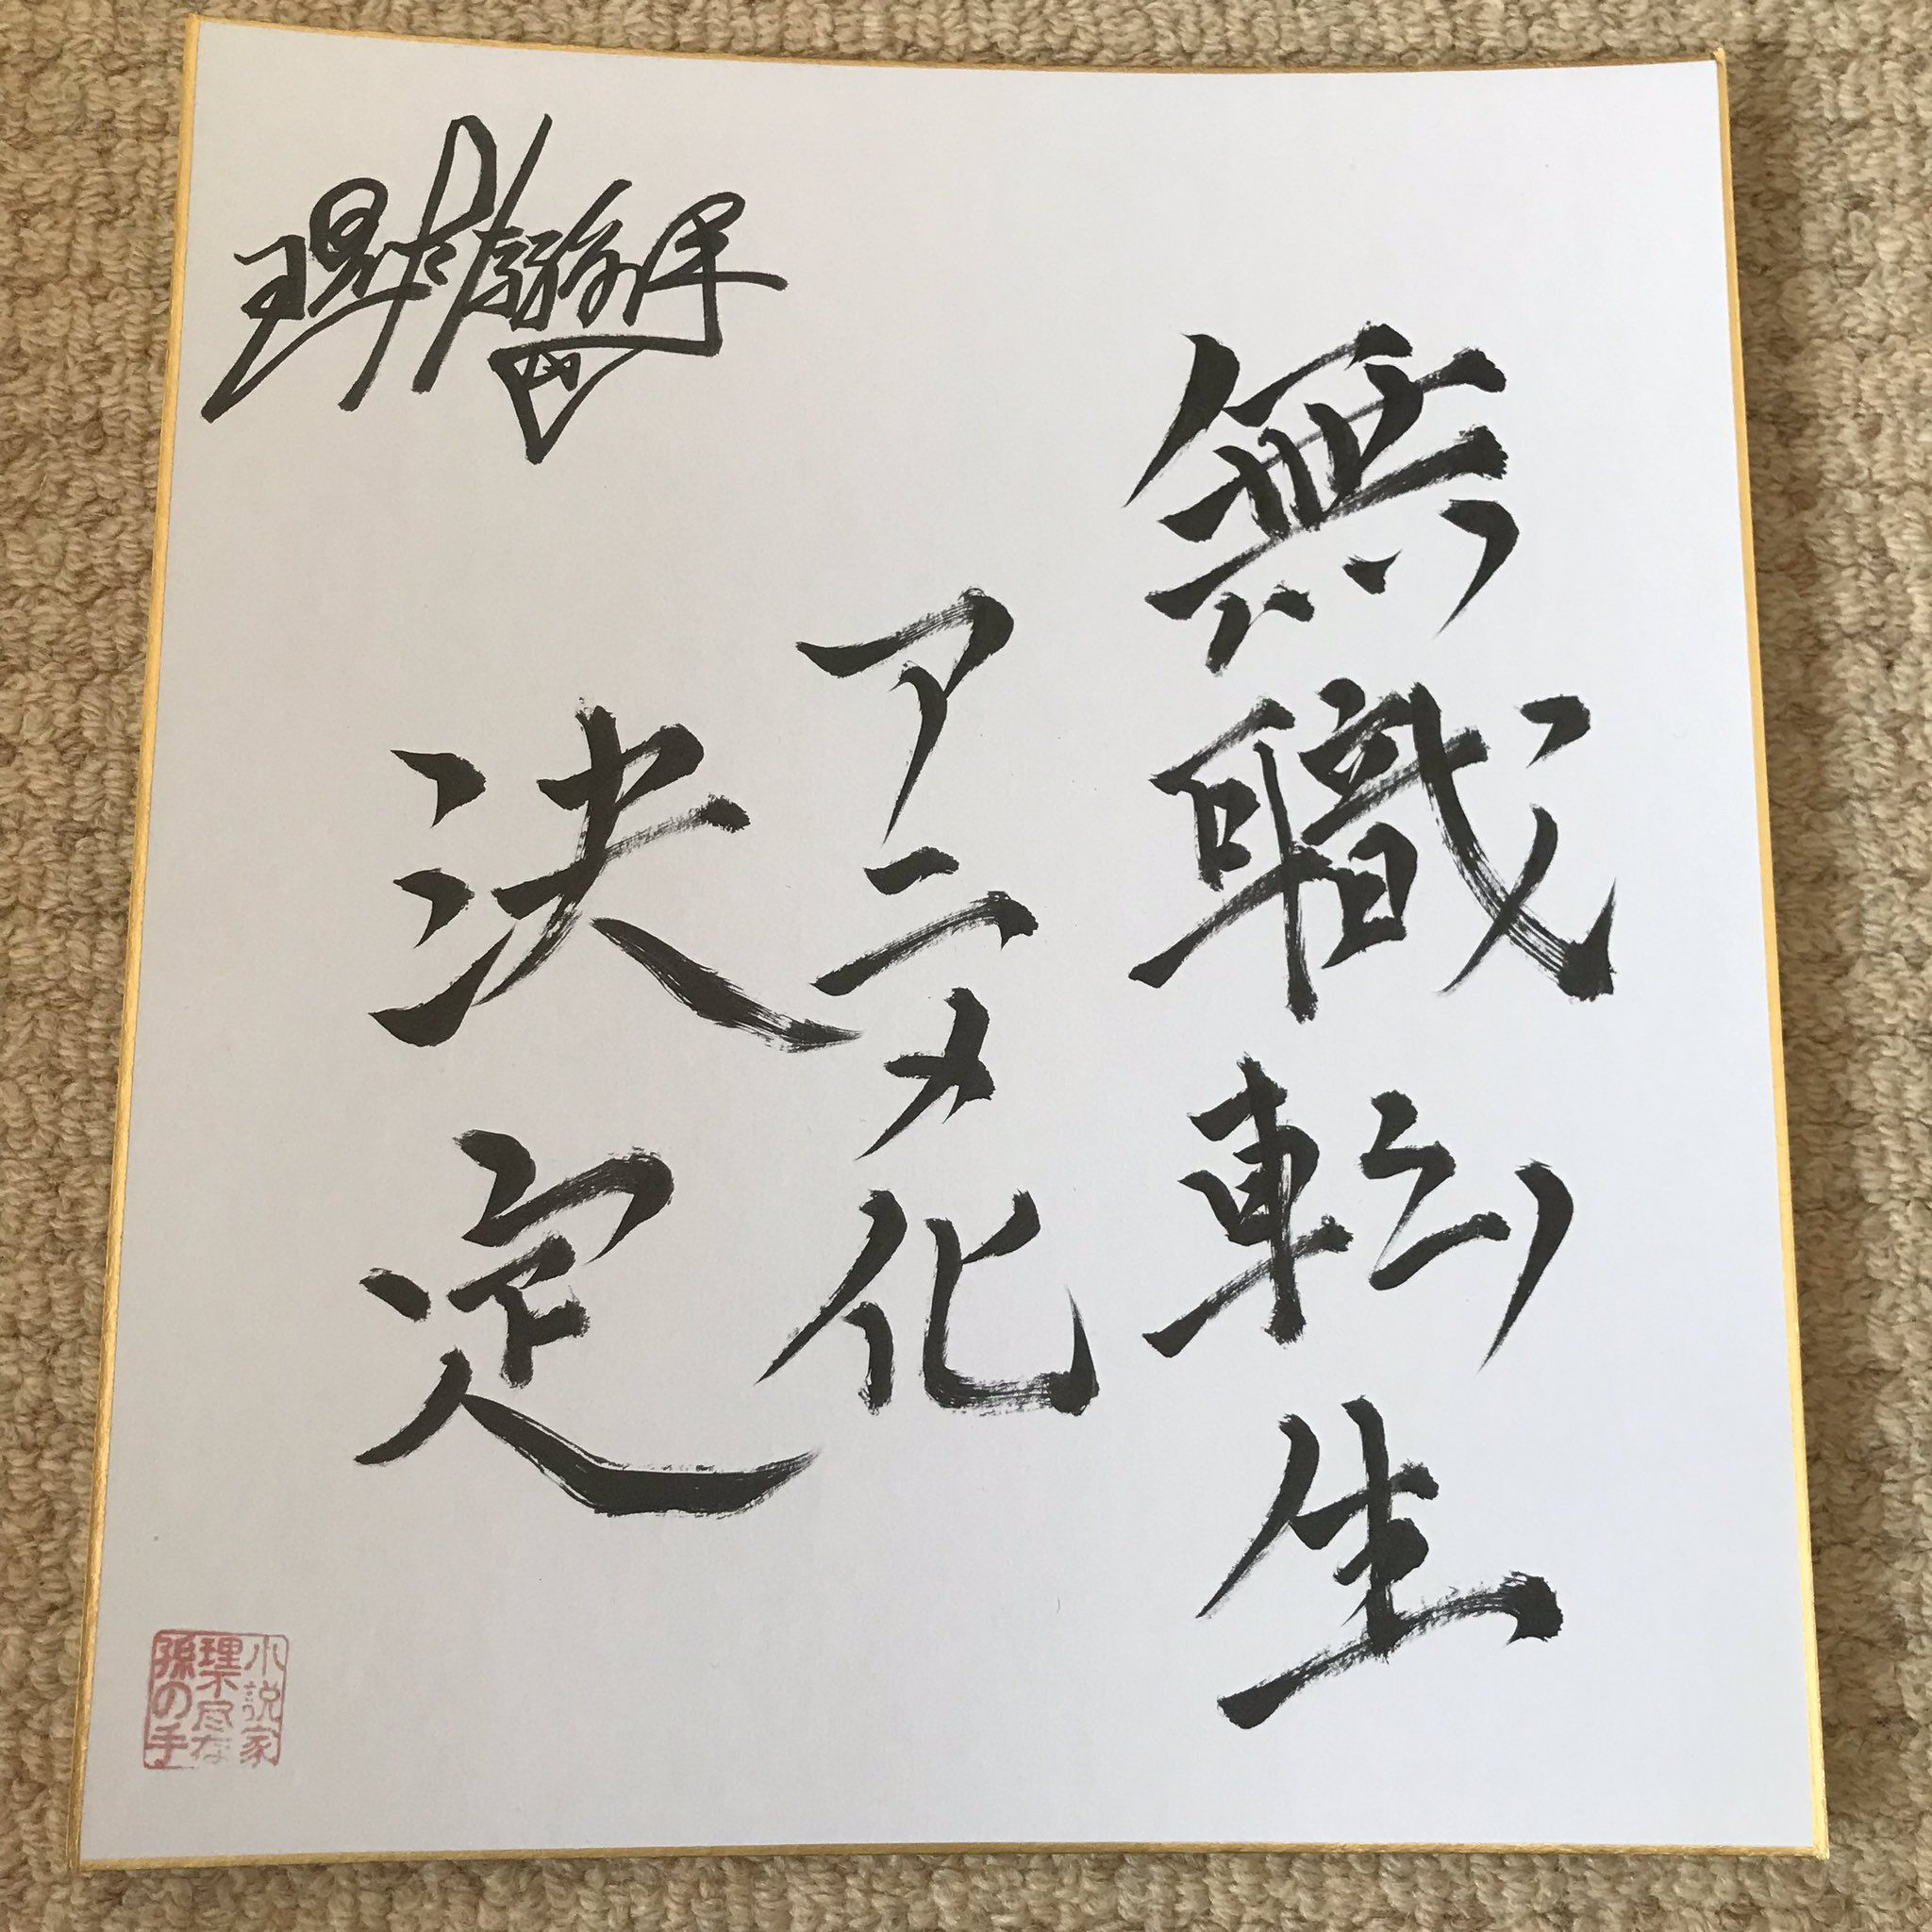 無職転生
アニメ化
決定
理不尽な孫の手
小説家
理不尽な
孫の手